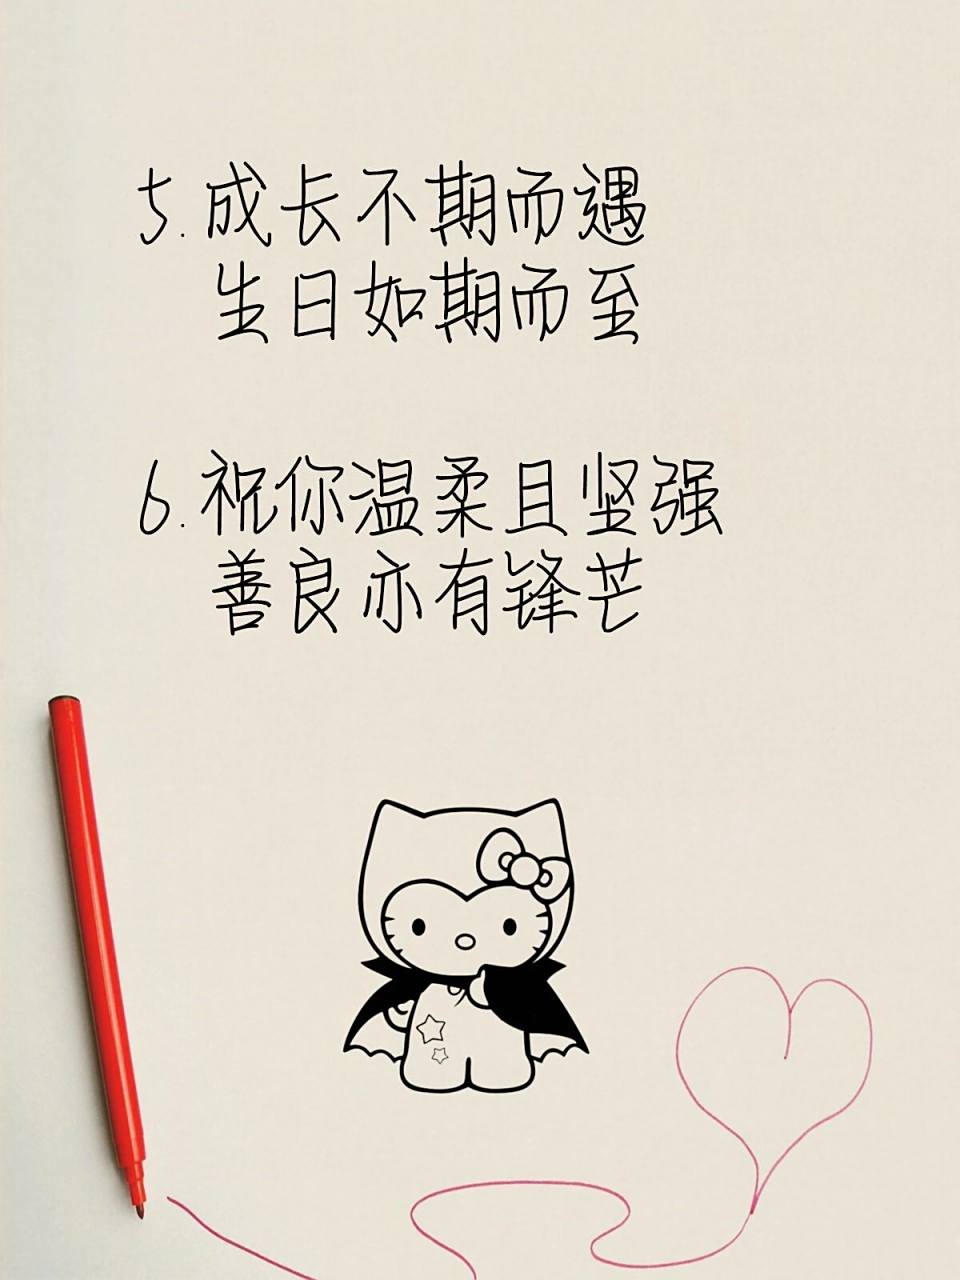 5.成长不期而遇
生日如期而至
6.祝你温柔且坚强
善良亦有锋芒